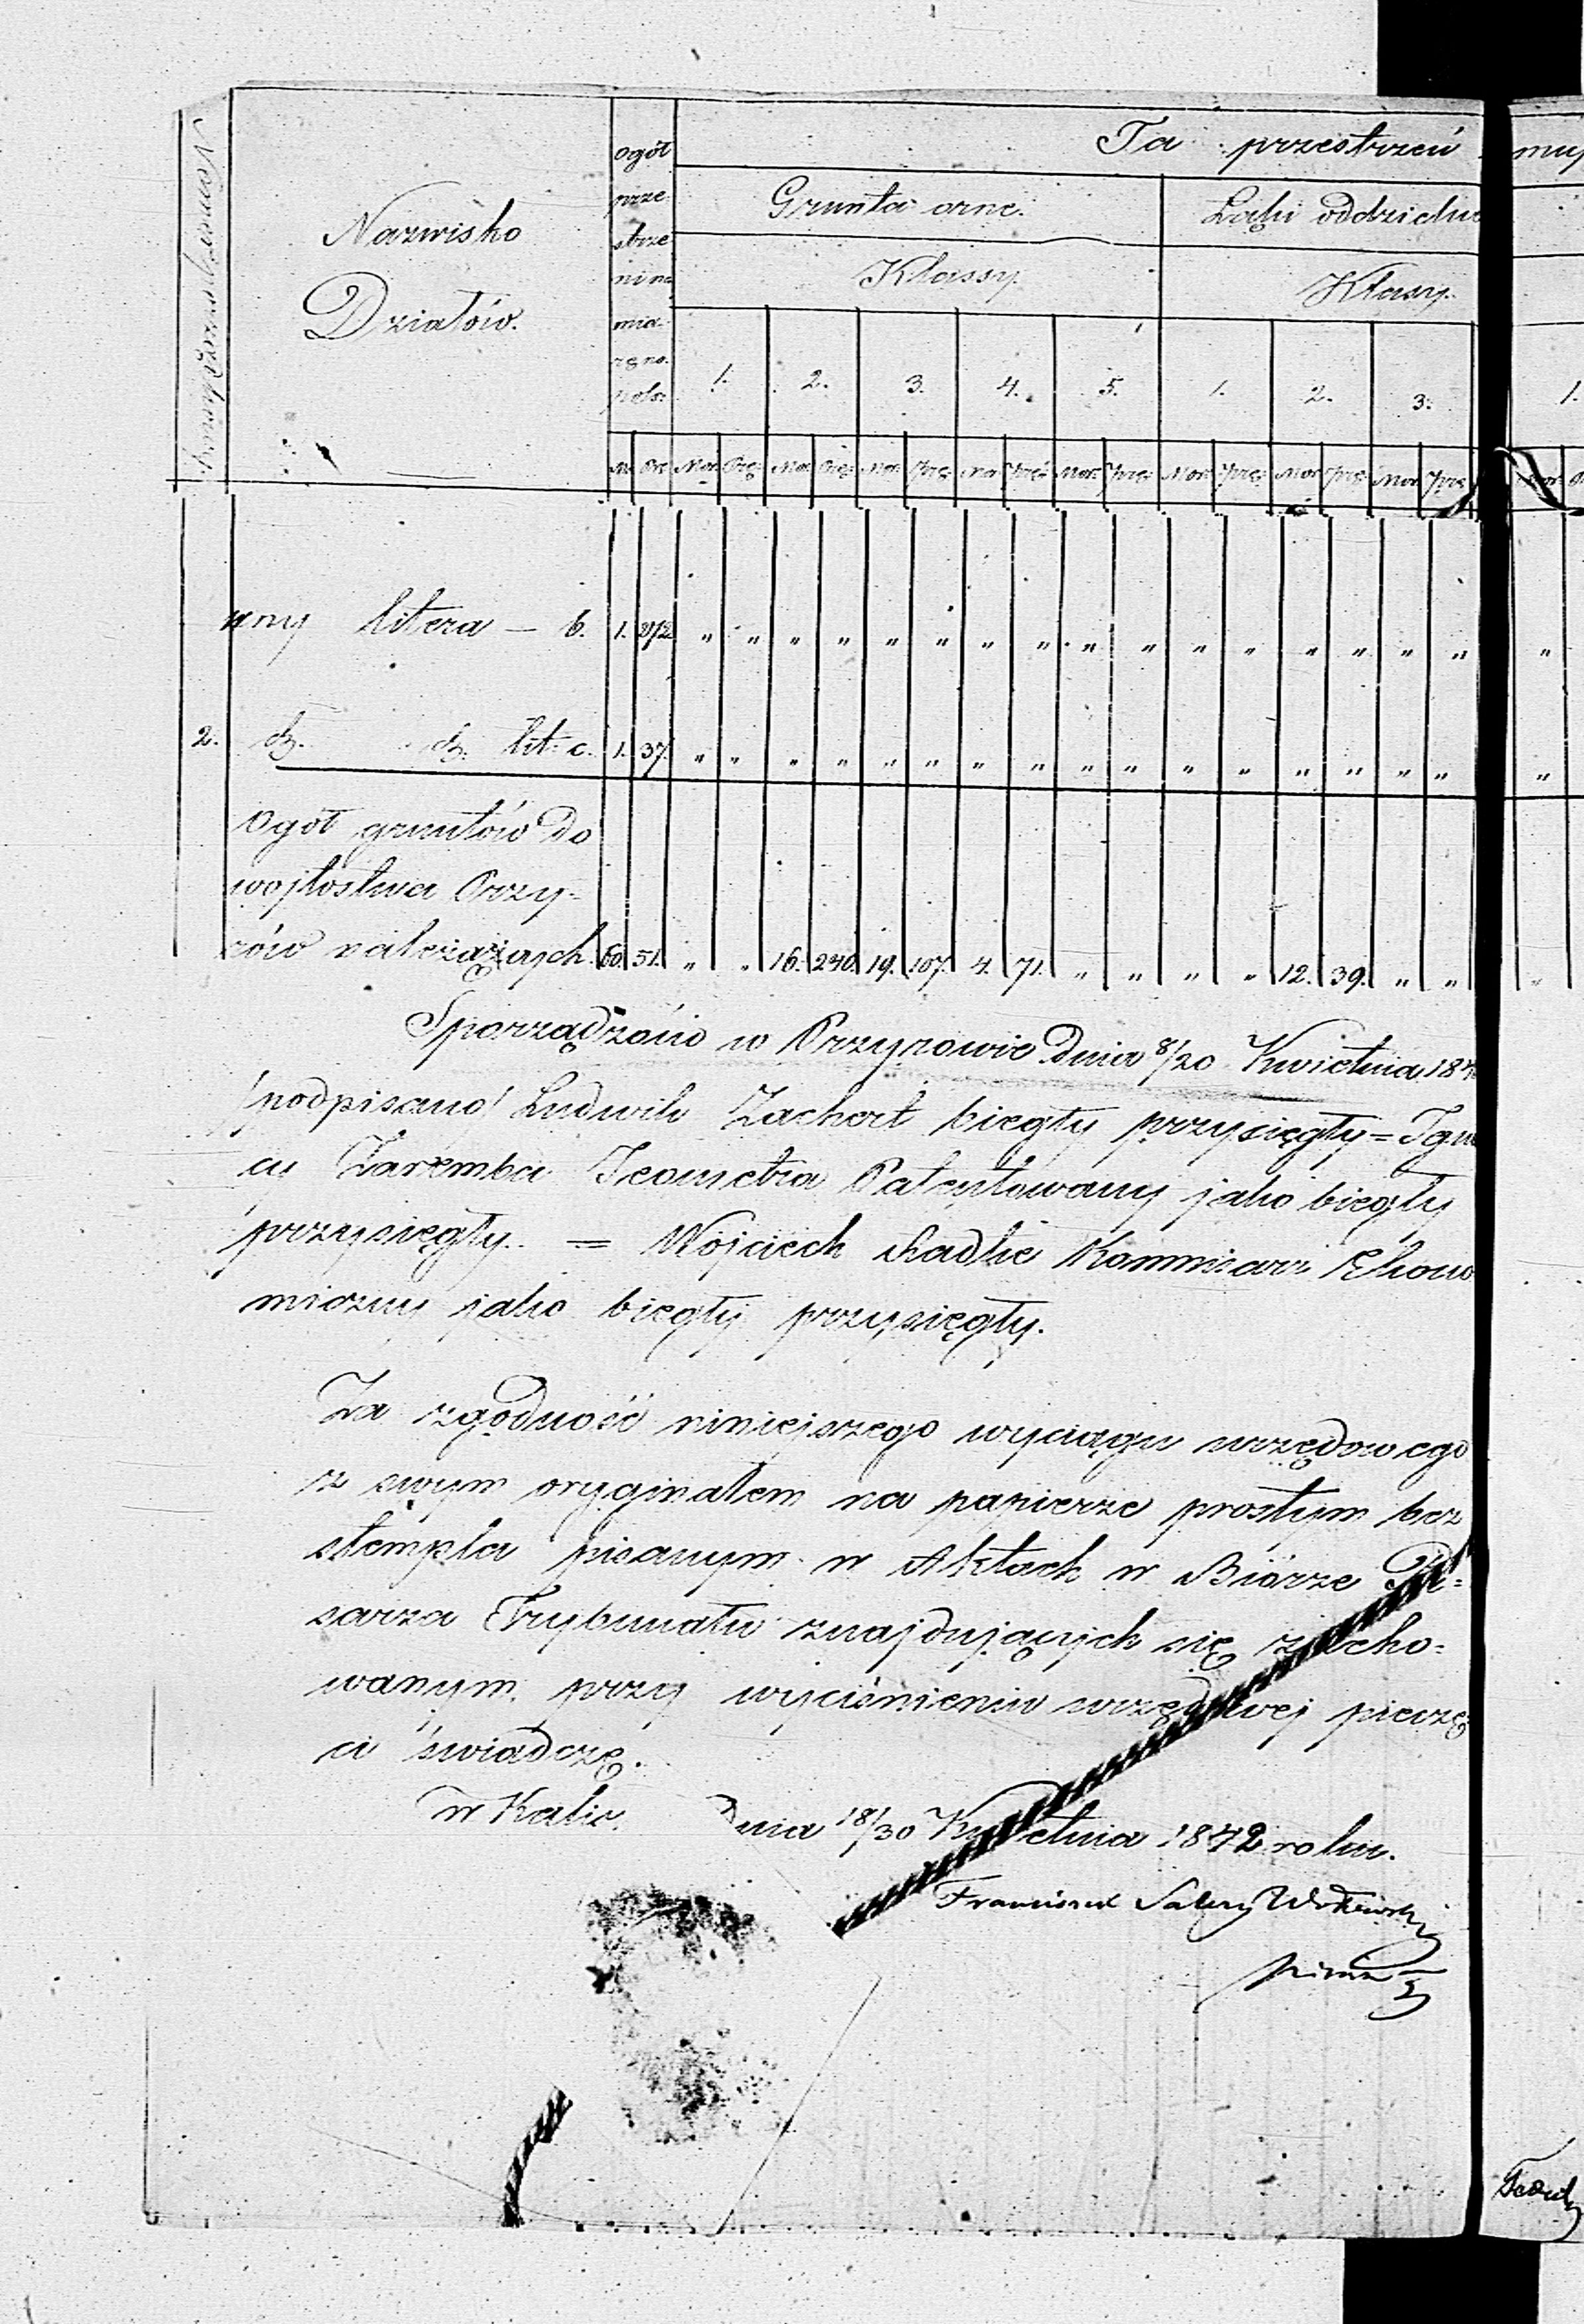 Numer porządkowy
Nazwisko
Działów.
ogół
prze
strze
ni na
mia
rę no.
Ta przestrzeń
Grunta orne.
Łąki oddzielne
Klassy.
Klasy.
1. 2. 3. 4. 5. 1. 2. 3. 1.
M. Prę. Mor. Prę. Mor. Prę. Mor. Prę. Mor. Pręt. Mor. Prę. Mor. Prę. Mor. Prę. Mor. Prę. Mor.
wny litera — b. 1. 272 " " " " " " " " " " " " " " " " "
2. dto. dto. lit. c. 1. 37. " " " " " " " " " " " " " " " " "
Ogół gruntów do
wojtostwa Przy-
rów należących. 60. 51. " " 16. 240. 19. 107. 4. 71. " " " " 12. 39. " " "
Sporządzono w Przyrowie dnia 8/20 Kwietnia 184
/podpisano/ Ludwik Zachert biegły przysięgły = Igna
cy Zaremba Jeometra Patentowany jako biegły
przysięgły. = Wojciech Radke Kommisarz Ekono
miczny jako biegły przysięgły.
Za zgodność niniejszego wyciągu urzędowego
z swym oryginałem na papierze prostym bez
stempla pisanym w Aktach w Biórze Pi=
sarza Trybunału znajdujących się zacho=
wanym. przy wyciśnieniu urzędowej pieczę
ci świadczę.
w Kalis. Dnia 18/30 Kwietnia 1842 roku.
Franciszek Salezy
Pisarz